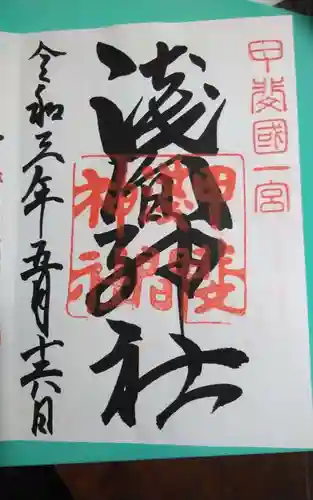 甲斐國一宮
浅間神社
甲斐國浅間神社
令和三年五月十六日